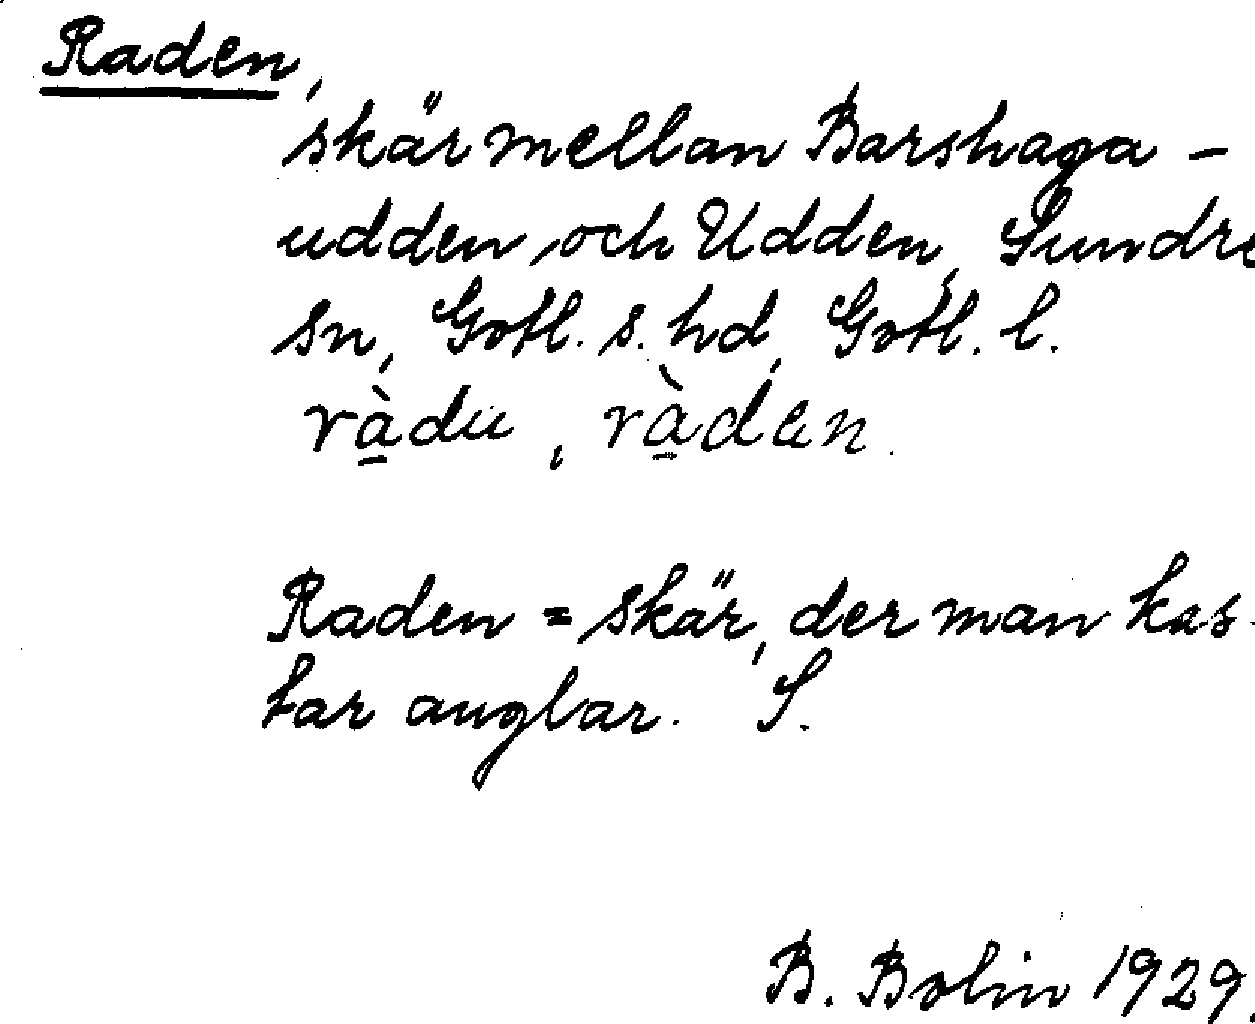 Raden,
skär mellan Barshaga-
udden och Udden, Sundre
sn, Gotl. s. hd, Gotl. l.
rà̱du, rà̱den.
Raden = skär, der man kas-
tar auglar. S.
B. Bolin 1929.